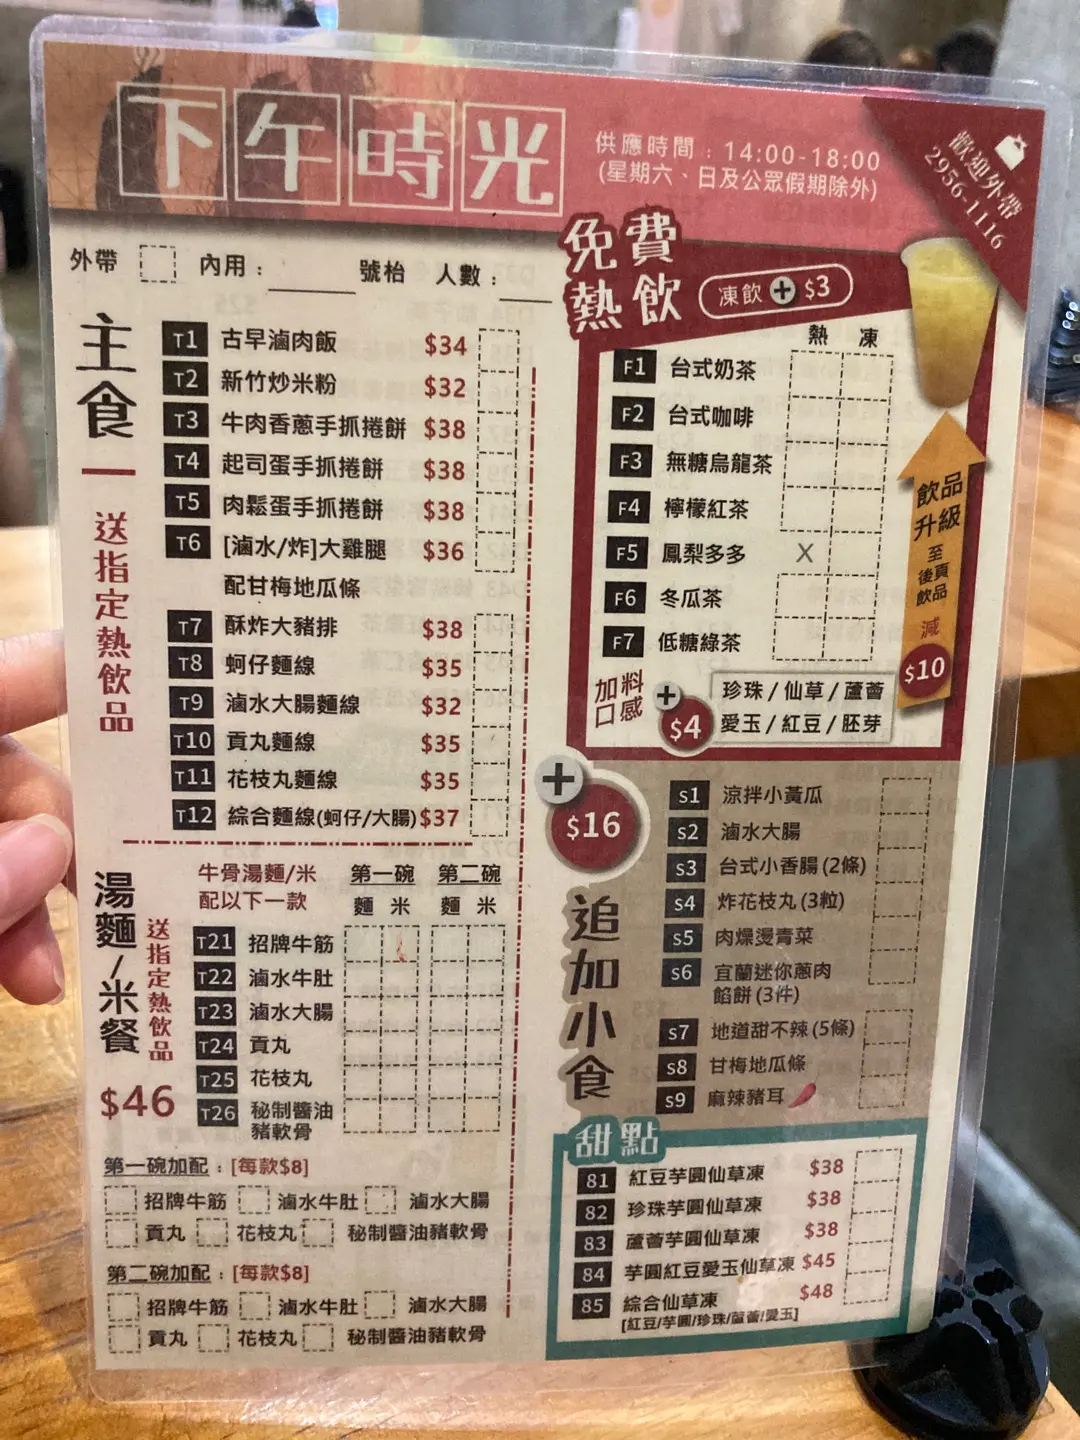 下午時光
供應時間：14:00-18:00
(星期六、日及公眾假期除外)
歡迎外帶
2956-1116
外帶 內用： 號枱 人數：
主食
送指定熱飲品
T1 古早滷肉飯 $34
T2 新竹炒米粉 $32
T3 牛肉香蔥手抓捲餅 $38
T4 起司蛋手抓捲餅 $38
T5 肉鬆蛋手抓捲餅 $38
T6 [滷水/炸]大雞腿 $36
配甘梅地瓜條
T7 酥炸大豬排 $38
T8 蚵仔麵線 $35
T9 滷水大腸麵線 $32
T10 貢丸麵線 $35
T11 花枝丸麵線 $35
T12 綜合麵線(蚵仔/大腸) $37
湯麵/米餐
送指定熱飲品
$46
牛骨湯麵/米 第一碗 第二碗
配以下一款 麵 米 麵 米
T21 招牌牛筋
T22 滷水牛肚
T23 滷水大腸
T24 貢丸
T25 花枝丸
T26 秘制醬油
豬軟骨
第一碗加配：[每款$8]
招牌牛筋 滷水牛肚 滷水大腸
貢丸 花枝丸 秘制醬油豬軟骨
第二碗加配：[每款$8]
招牌牛筋 滷水牛肚 滷水大腸
貢丸 花枝丸 秘制醬油豬軟骨
免費
熱飲
凍飲+$3
熱 凍
F1 台式奶茶
F2 台式咖啡
F3 無糖烏龍茶
F4 檸檬紅茶
F5 鳳梨多多 X
F6 冬瓜茶
F7 低糖綠茶
飲品
升級
至
後頁
飲品
減
$10
加料
口感
+
$4
珍珠/仙草/蘆薈
愛玉/紅豆/胚芽
+
$16
追加小食
S1 涼拌小黃瓜
S2 滷水大腸
S3 台式小香腸(2條)
S4 炸花枝丸(3粒)
S5 肉燥燙青菜
S6 宜蘭迷你蔥肉
餡餅(3件)
S7 地道甜不辣(5條)
S8 甘梅地瓜條
S9 麻辣豬耳
甜點
81 紅豆芋圓仙草凍 $38
82 珍珠芋圓仙草凍 $38
83 蘆薈芋圓仙草凍 $38
84 芋圓紅豆愛玉仙草凍 $45
85 綜合仙草凍 $48
[紅豆/芋圓/珍珠/蘆薈/愛玉]